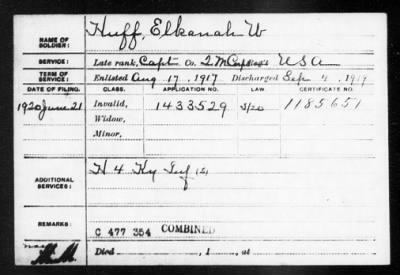 NAME OF SOLDIER: Huff, Elkanah W
SERVICE: Late rank, Capt Co. 2 M Corps U S A
TERM OF SERVICE: Enlisted Aug 17, 1917 Discharged Sep 4, 1919
DATE OF FILING. CLASS. APPLICATION NO. LAW. CERTIFICATE NO.
1920 June 21 Invalid, 1433529 5/20 1185651
Widow,
Minor,
ADDITIONAL SERVICES: H 4 Ky Inf
REMARKS: C 477 354 COMBINED
Died , 1 , at